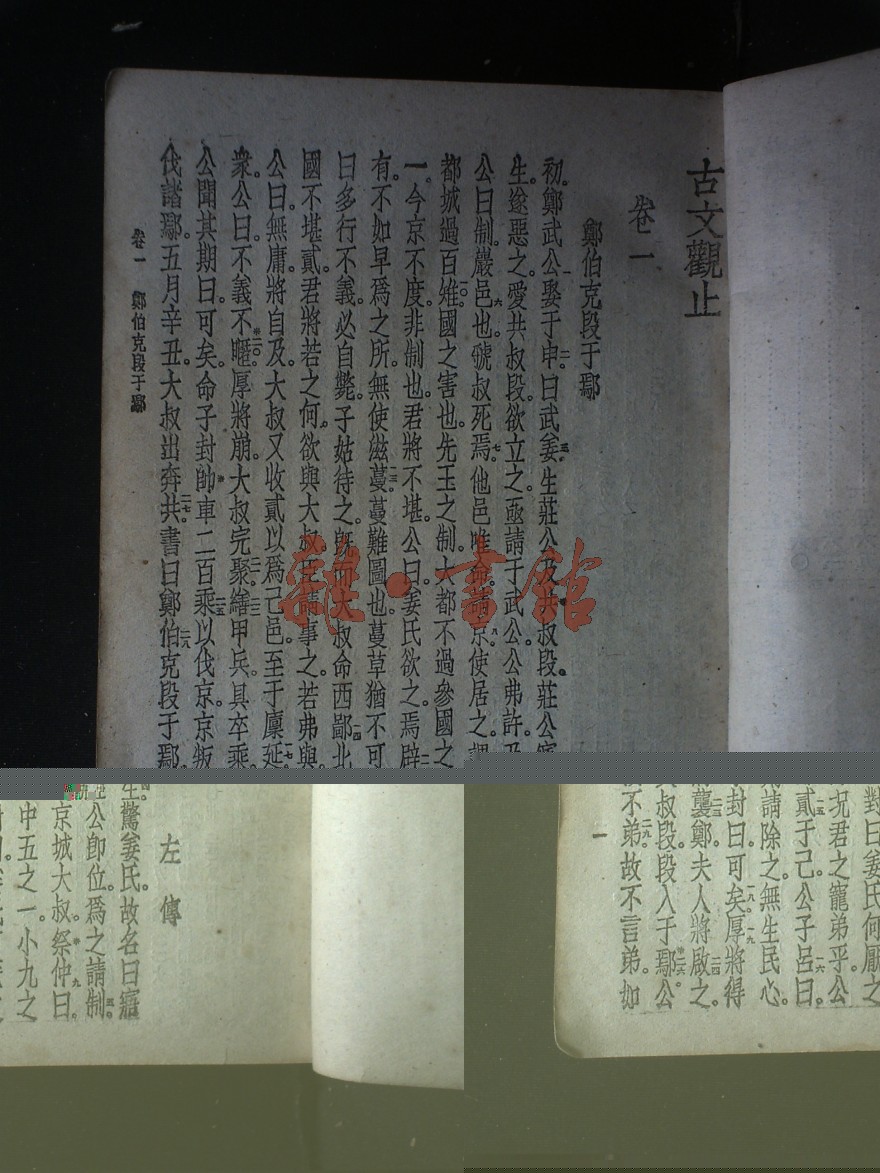 古文觀止
卷一
鄭伯克段于鄢
初。鄭武公娶于申。曰武姜。生莊公及共叔段。莊公寤
生。遂惡之。愛共叔段。欲立之。亟請于武公。公弗許。及
公曰。制。巖邑也。虢叔死焉。他邑唯命。請京。使居之。謂
都城過百雉。國之害也。先王之制。大都不過參國之
一。今京不度。非制也。君將不堪。公曰。姜氏欲之。焉辟
有。不如早爲之所。無使滋蔓。蔓難圖也。蔓草猶不可
曰多行不義必自斃。子姑待之。既而大叔命西鄙北
國不堪貳。君將若之何。欲與大叔。臣請事之。若弗與
公曰。無庸。將自及。大叔又收貳以爲己邑。至于廩延
衆。公曰。不義不暱。厚將崩。大叔完聚。繕甲兵。具卒乘
公聞其期。曰可矣。命子封帥車二百乘以伐京。京叛
伐諸鄢。五月辛丑。大叔出奔共。書曰鄭伯克段于鄢
卷一 鄭伯克段于鄢
雜·書館
左傳
生驚姜氏。故名曰寤
公卽位。爲之請制。
京城大叔。祭仲曰。
中五之一。小九之
對曰。姜氏何厭之
況君之寵弟乎。公
貳于己。公子呂曰。
請除之。無生民心。
封曰。可矣。厚將得
襲鄭。夫人將啟之。
叔段。段入于鄢。公
不弟。故不言弟。如
一